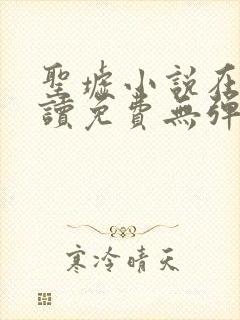 聖墟小說在
讀免費無彈
寒冷晴天